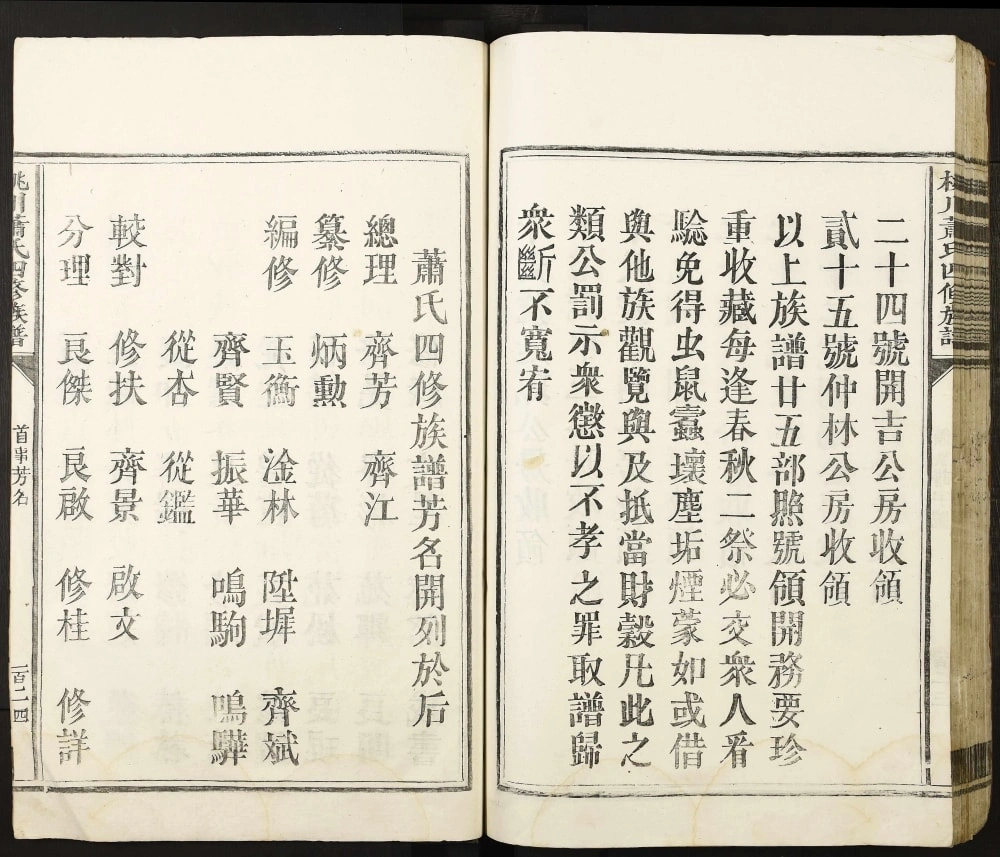 桃川蕭氏四修族譜
二十四號開吉公房收領
貳十五號仲林公房收領
以上族譜廿五部照號領開務要珍
重收藏每逢春秋二祭必交衆人看
驗免得虫鼠蠹壞塵垢煙蒙如或借
與他族觀覽與及抵當財穀凡此之
類公罰示衆懲以不孝之罪取譜歸
衆斷不寬宥
蕭氏四修族譜芳名開列於后
總理 齊芳 齊江
纂修 炳勳
編修 玉衡 淦林 陞墀 齊斌
齊賢 振華 鳴駒 鳴驊
從杏 從鑑
較對 修扶 齊景 啟文
分理 艮傑 艮啟 修桂 修詳
桃川蕭氏四修族譜
首事芳名
一百二四